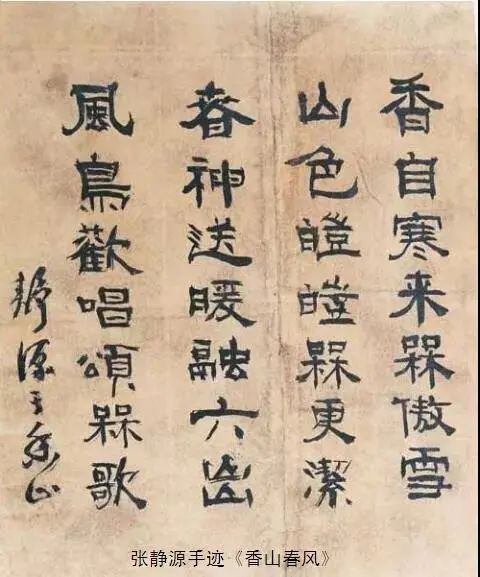 香自寒来槑傲雪
山色皚皚槑更潔
春神送暖融六出
風鳥歡唱頌槑歌
靜源于香山
张静源手迹《香山春风》